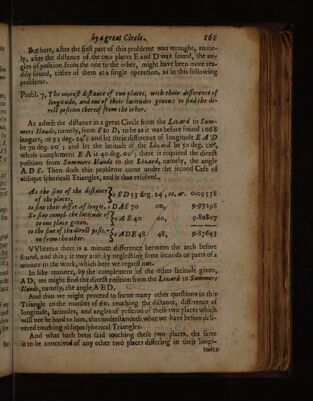 by a great Circle. 161
But here, after the first part of this probleme was wrought, name-
ly, after the distance of the two places E and D was found, the an-
gles of position from the one to the other, might have been more rea-
dily found, either of them at a single operation, as in this following
probleme.
Probl. 7. The nearest distance of two places, with their difference of
longitude, and one of their latitudes given: to find the di-
rect position thereof from the other.
As admit the distance in a great Circle from the Lizard to Sum-
mers Ilands, namely, from E to D, to be as it was before found 1068
leagues, or 53 deg. 24'; and let their difference of longitude E A D
be 70 deg. 00'; and let the latitude of the Lizard be 50 deg. 00',
whose complement E A is 40 deg. 00'; there is required the direct
position from Summers Ilands to the Lizard, namely, the angle
A D E. Then doth this probleme come under the second Case of
oblique spherical Triangles, and is thus resolved;
As the sine of the distance of the places, } ED 53 deg. 24', co. ar. 0.09538
to sine their differ. of longit. DAE 70 00, 9.97298
So sine compl. the latitude of one place given, } AE 40 00, 9.80807
to the sine of the direct position from the other. } ADE 48 48, 9.87643
Whereas there is a minute difference between the arch before
found, and this; it may arise by neglecting some seconds or parts of a
minute in the work, which here we regard not.
In like manner, by the complement of the other latitude given,
A D, we might find the direct position from the Lizard to Summers
Ilands, namely, the angle A E D.
And thus we might proceed to frame many other questions in this
Triangle to the number of 60, touching the distance, difference of
longitude, latitudes, and angles of position of these two places which
will not be hard to him, that understandeth what we have before deli-
vered touching oblique spherical Triangles.
And what hath been said touching these two places, the same
is to be conceived of any other two places differing in their longi-
tudes